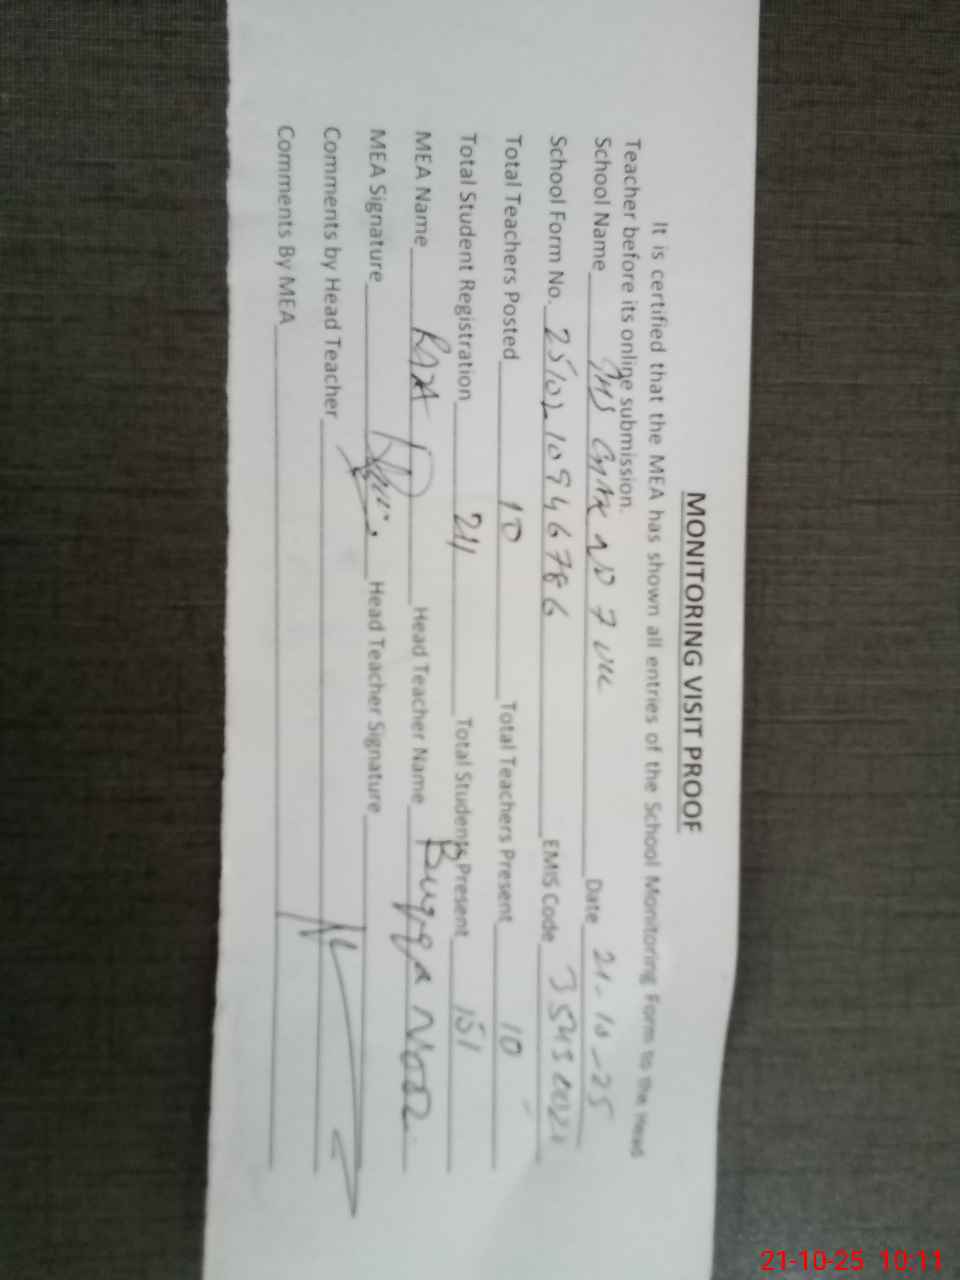 MONITORING VISIT PROOF
It is certified that the MEA has shown all entries of the School Monitoring Form to the Head
Teacher before its online submission.
School Name Date 21-10-25
School Form No. EMIS Code
Total Teachers Posted 10 Total Teachers Present 10
Total Student Registration 211 Total Students Present 151
MEA Name Head Teacher Name
MEA Signature Head Teacher Signature
Comments by Head Teacher
Comments By MEA
21-10-25 10:11